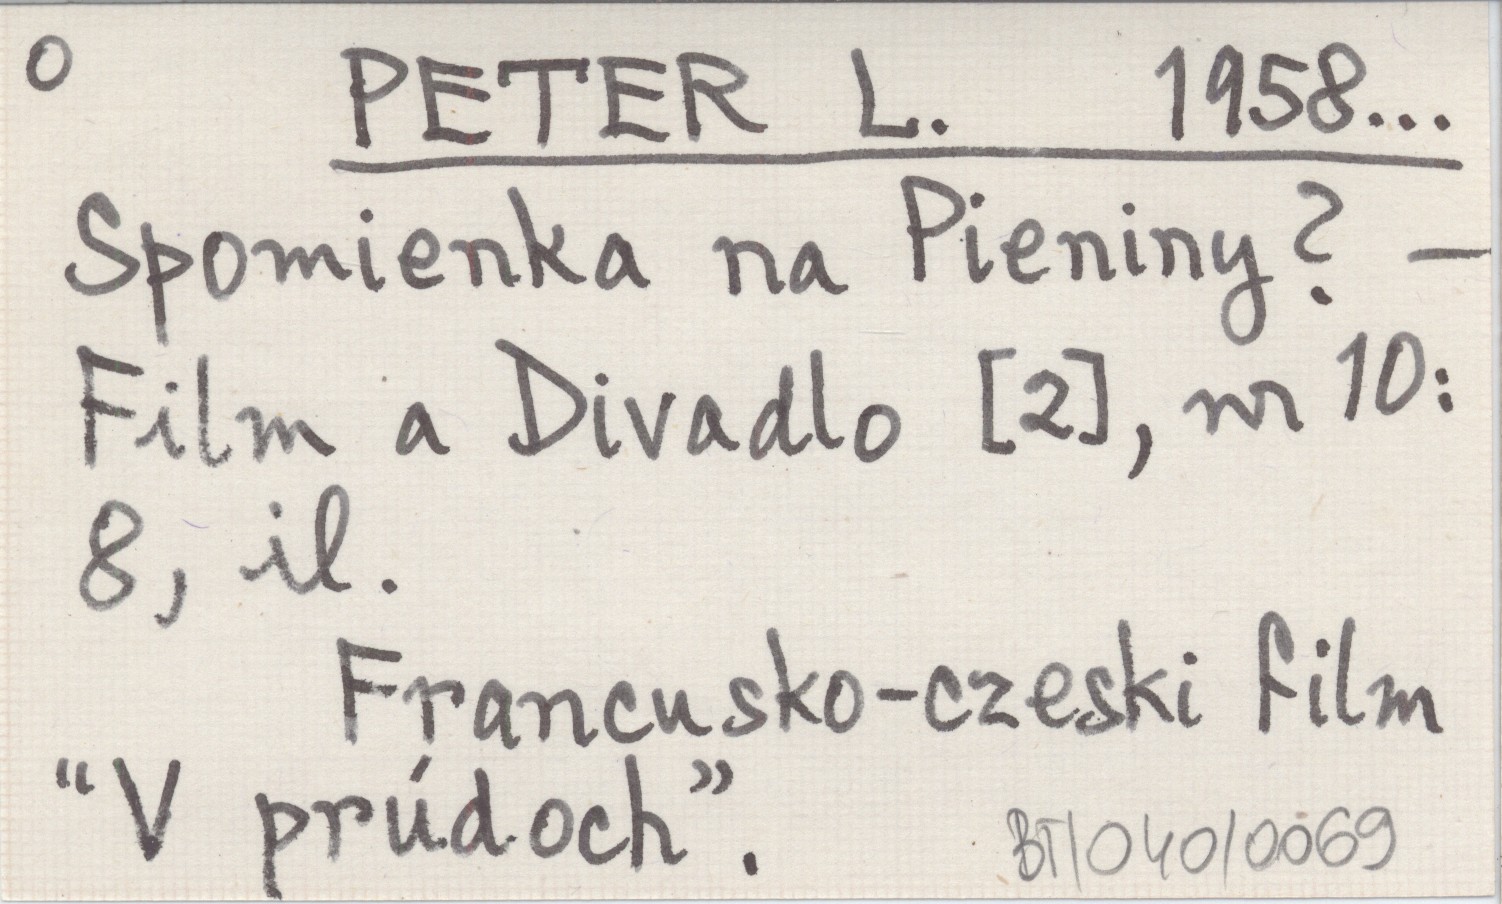 O PETER L. 1958...
Spomienka na Pieniny? —
Film a Divadlo [2], nr 10:
8, il.
Francusko-czeski film
“V prúdoch”.
BT/040/0069